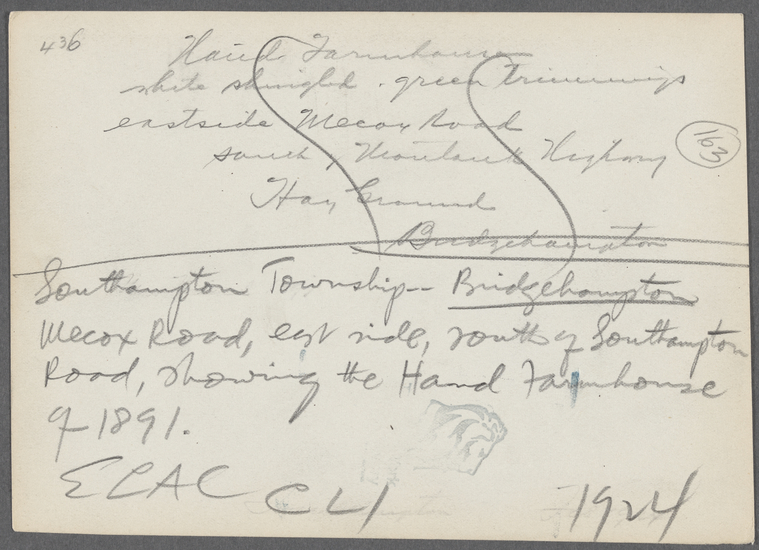 436
Hand Farmhouse
white shingled. green trimmings
eastside Mecox Road
south of Montauk Highway
163
Hay Ground
Bridgehampton
Southampton Township-- Bridgehampton
Mecox Road, east side, south of Southampton
Road, showing the Hand Farmhouse
of 1891.
ELAC CLI 1924